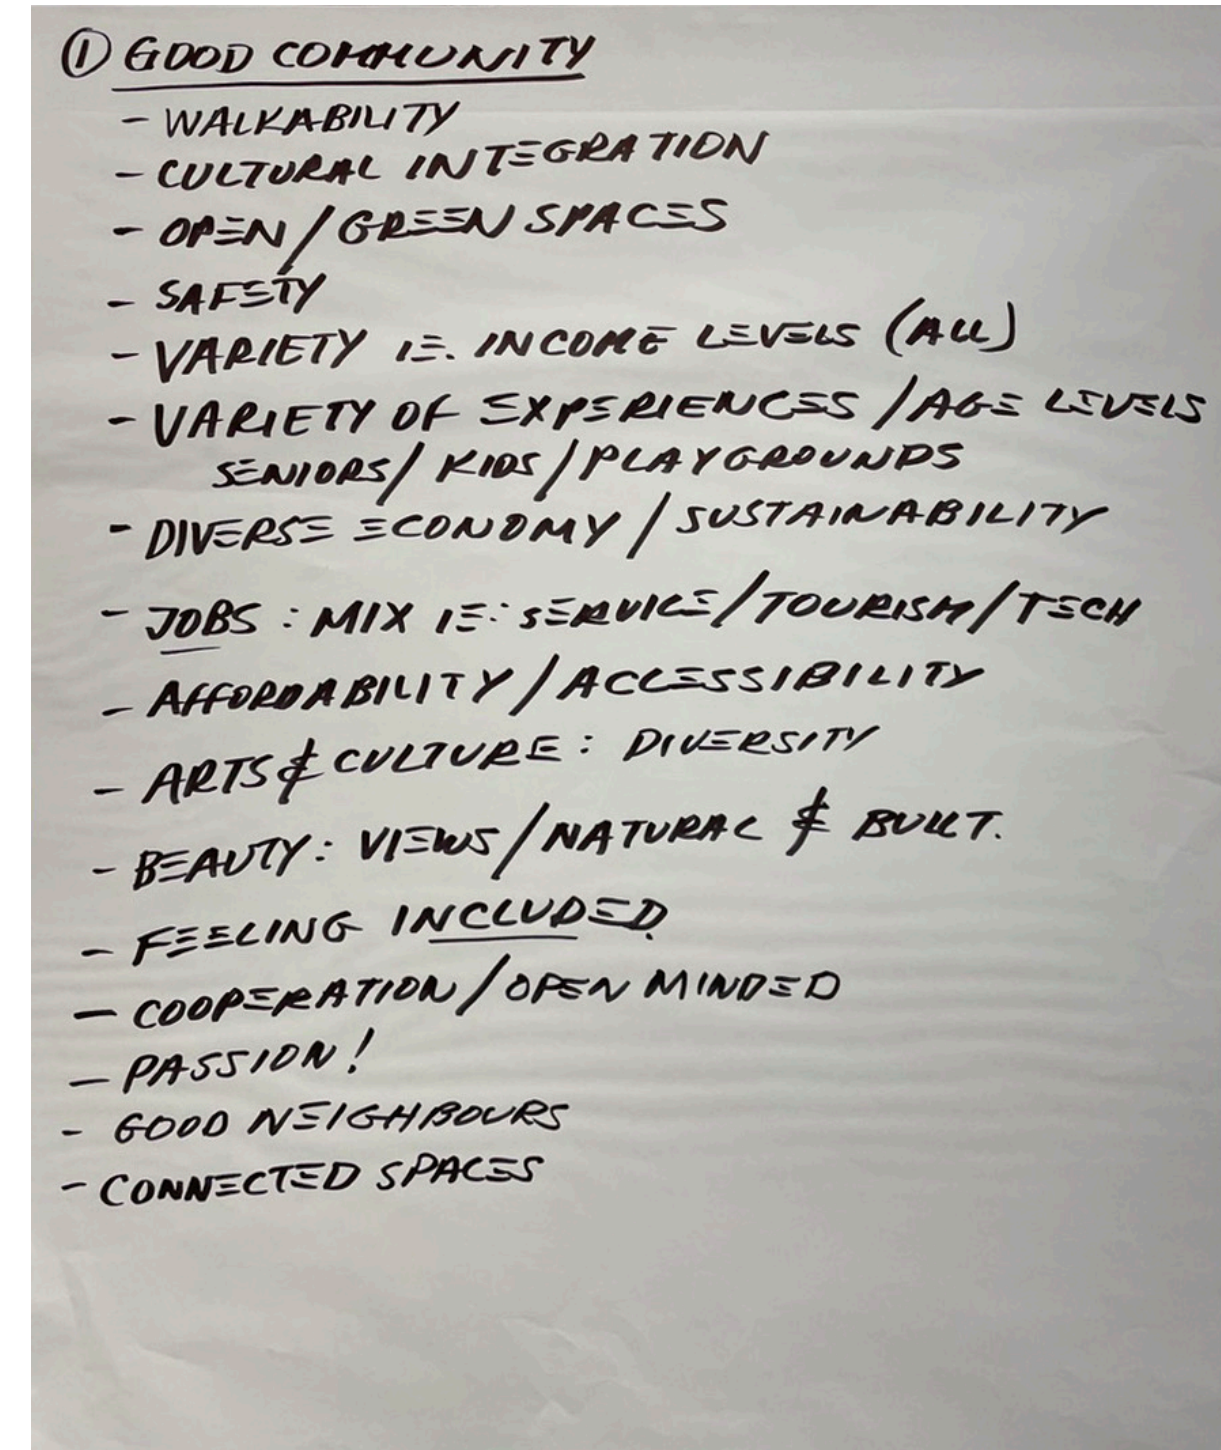 ① GOOD COMMUNITY
- WALKABILITY
- CULTURAL INTEGRATION
- OPEN / GREEN SPACES
- SAFETY
- VARIETY IE. INCOME LEVELS (ALL)
- VARIETY OF EXPERIENCES / AGE LEVELS
SENIORS / KIDS / PLAYGROUNDS
- DIVERSE ECONOMY / SUSTAINABILITY
- JOBS : MIX IE: SERVICE / TOURISM / TECH
- AFFORDABILITY / ACCESSIBILITY
- ARTS & CULTURE : DIVERSITY
- BEAUTY : VIEWS / NATURAL & BUILT.
- FEELING INCLUDED.
- COOPERATION / OPEN MINDED
- PASSION!
- GOOD NEIGHBOURS
- CONNECTED SPACES